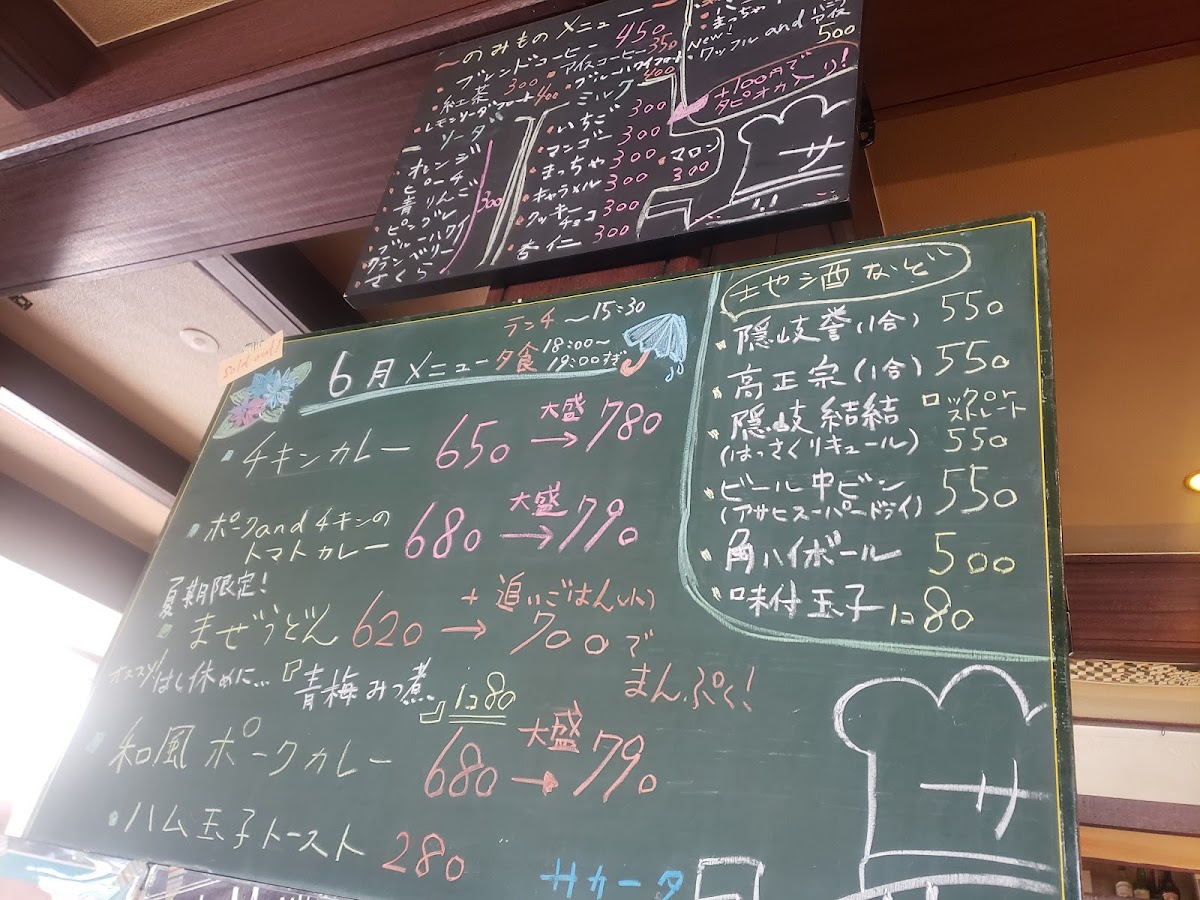 〜のみものメニュー〜
ブレンドコーヒー 450
アイスコーヒー 350
紅茶 300
ブルーハワイフロート 400
レモンソーダフロート 400
ソーダ
オレンジ
ピーチ
青りんご
パイン
ブルーハワイ
クランベリー
さくら
300
ミルク
いちご 300
マンゴー 300
まっちゃ 300
キャラメル 300
クッキーチョコ 300
杏仁 300
マロン
300
まっちゃ
New!
ワッフル and アイス
500
+100円で
タピオカ入り!
サ
sold out!
ランチ 〜15:30
6月メニュー
夕食 18:00〜
19:00すぎ
チキンカレー 650 → 大盛 780
ポークandチキンの
トマトカレー 680 → 大盛 790
夏期限定!
まぜうどん 620 → + 追いごはん 700で
まんぷく!
オススメ! はし休めに…『青梅みつ煮』 1コ80
和風ポークカレー 680 → 大盛 790
ハム玉子トースト 280
サカータ
地酒など
隠岐誉(1合) 550
高正宗(1合) 550
隠岐結結 ロックor
ストレート
(はっさくリキュール) 550
ビール中ビン
(アサヒスーパードライ) 550
角ハイボール 500
味付玉子 1コ80
サ